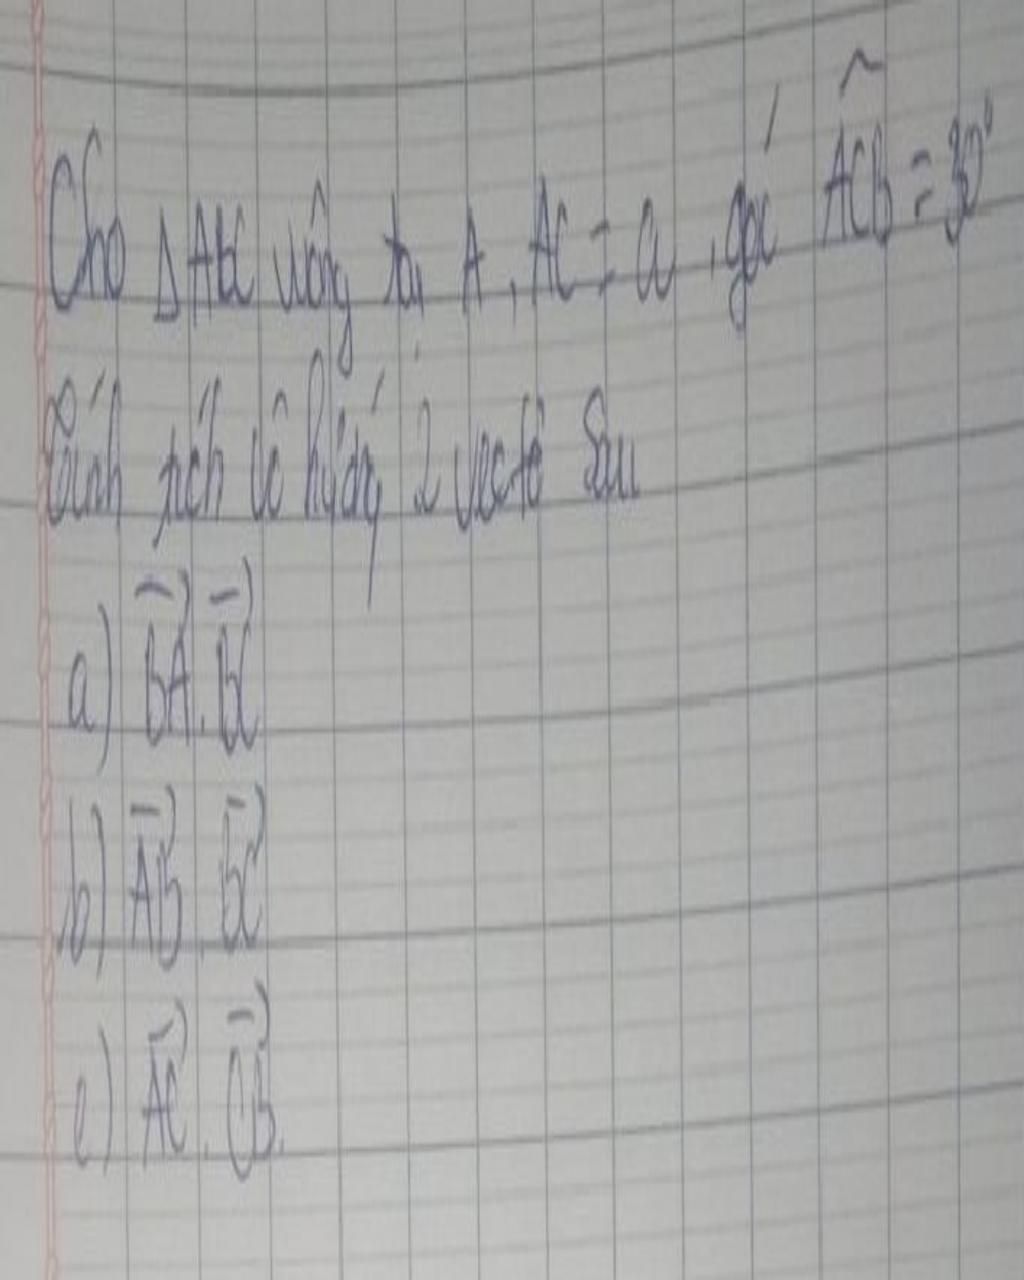 Cho ΔABC vuông tại A, AC = a, góc $\widehat{ACB}$ = 30°
Tính tích vô hướng 2 vectơ sau
a) $\overrightarrow{BA}$.$\overrightarrow{BC}$
b) $\overrightarrow{AB}$.$\overrightarrow{BC}$
c) $\overrightarrow{AC}$.$\overrightarrow{CB}$.